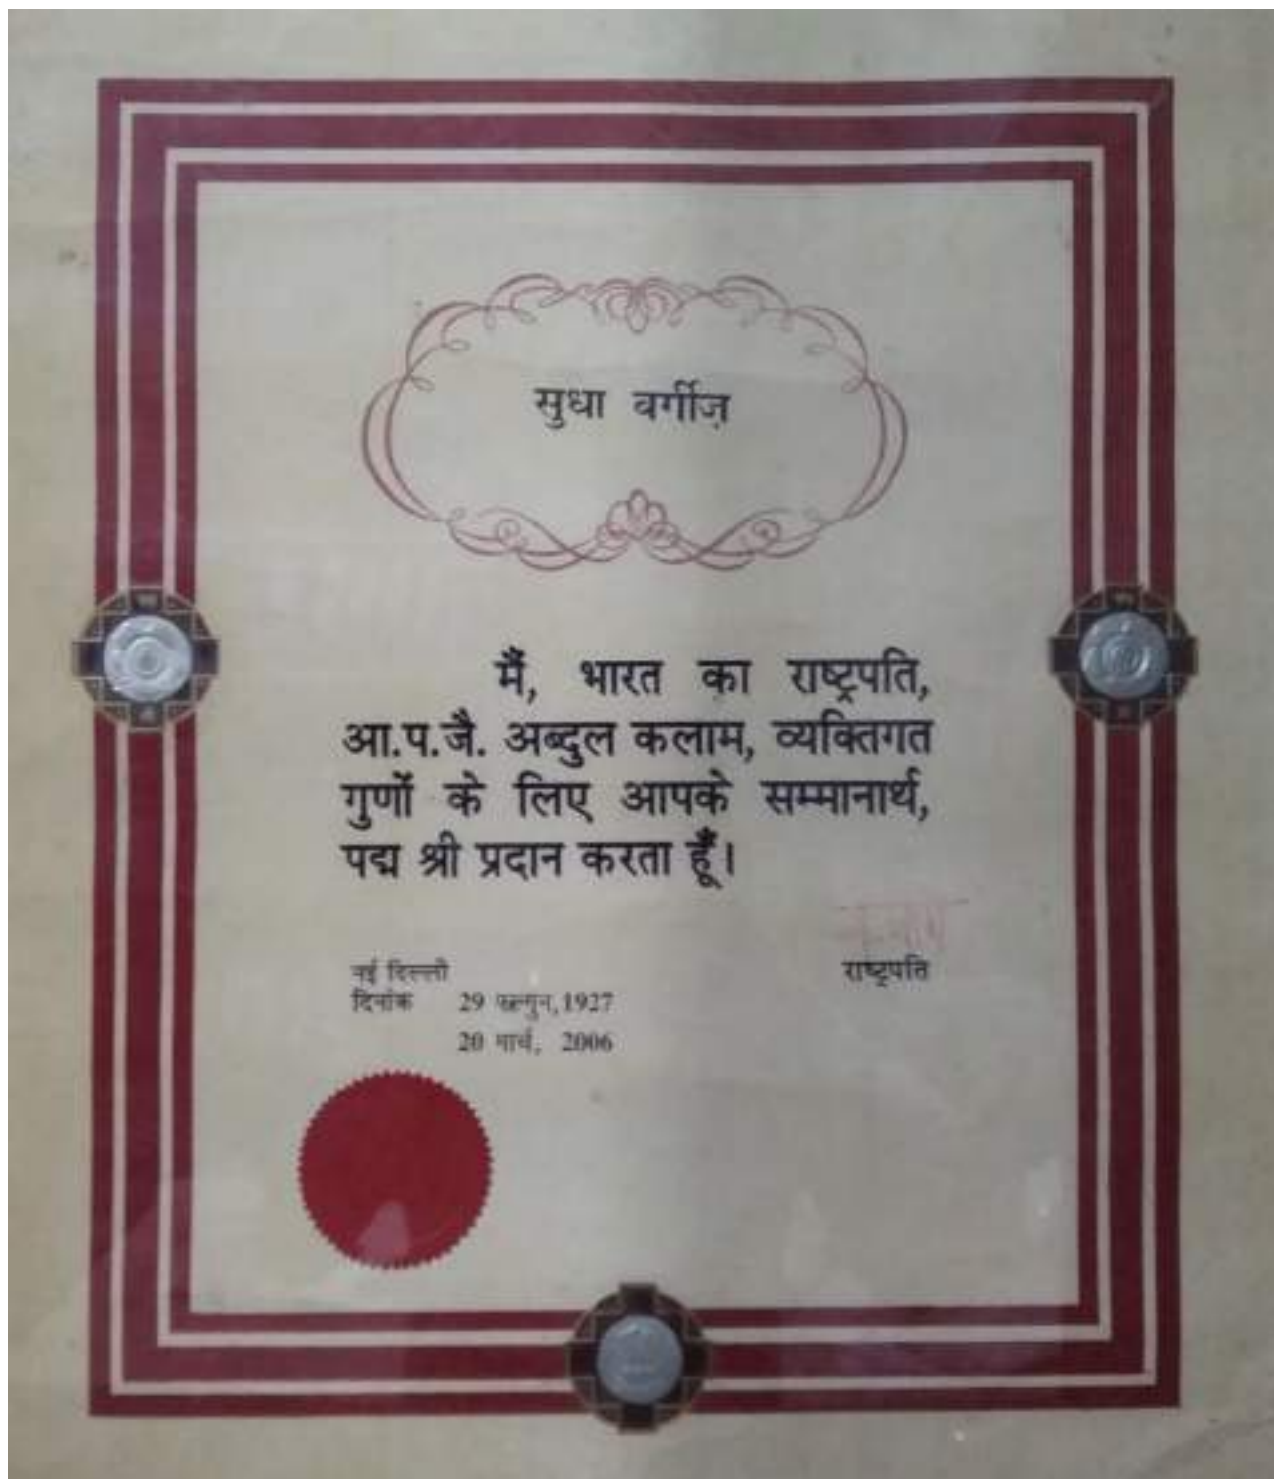 सुधा वर्गीज़
मैं, भारत का राष्ट्रपति,
आ.प.जै. अब्दुल कलाम, व्यक्तिगत
गुणों के लिए आपके सम्मानार्थ,
पद्म श्री प्रदान करता हूँ।
राष्ट्रपति
नई दिल्ली
दिनांक 29 फाल्गुन, 1927
20 मार्च, 2006